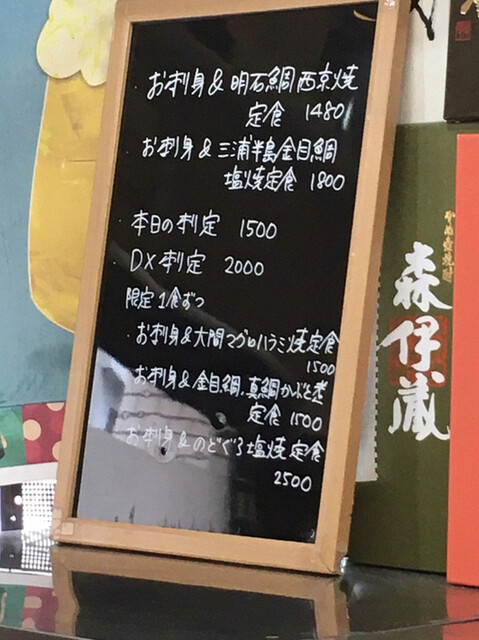 ・お刺身&明石鯛西京焼
定食 1480
・お刺身&三浦半島金目鯛
塩焼定食 1800
・本日の刺定 1500
・DX刺定 2000
限定1食ずつ
・お刺身&大間マグロハラミ焼定食
1500
・お刺身&金目鯛、真鯛かぶと煮
定食 1500
・お刺身&のどぐろ塩焼定食
2500
かめ壺焼酎
森伊蔵